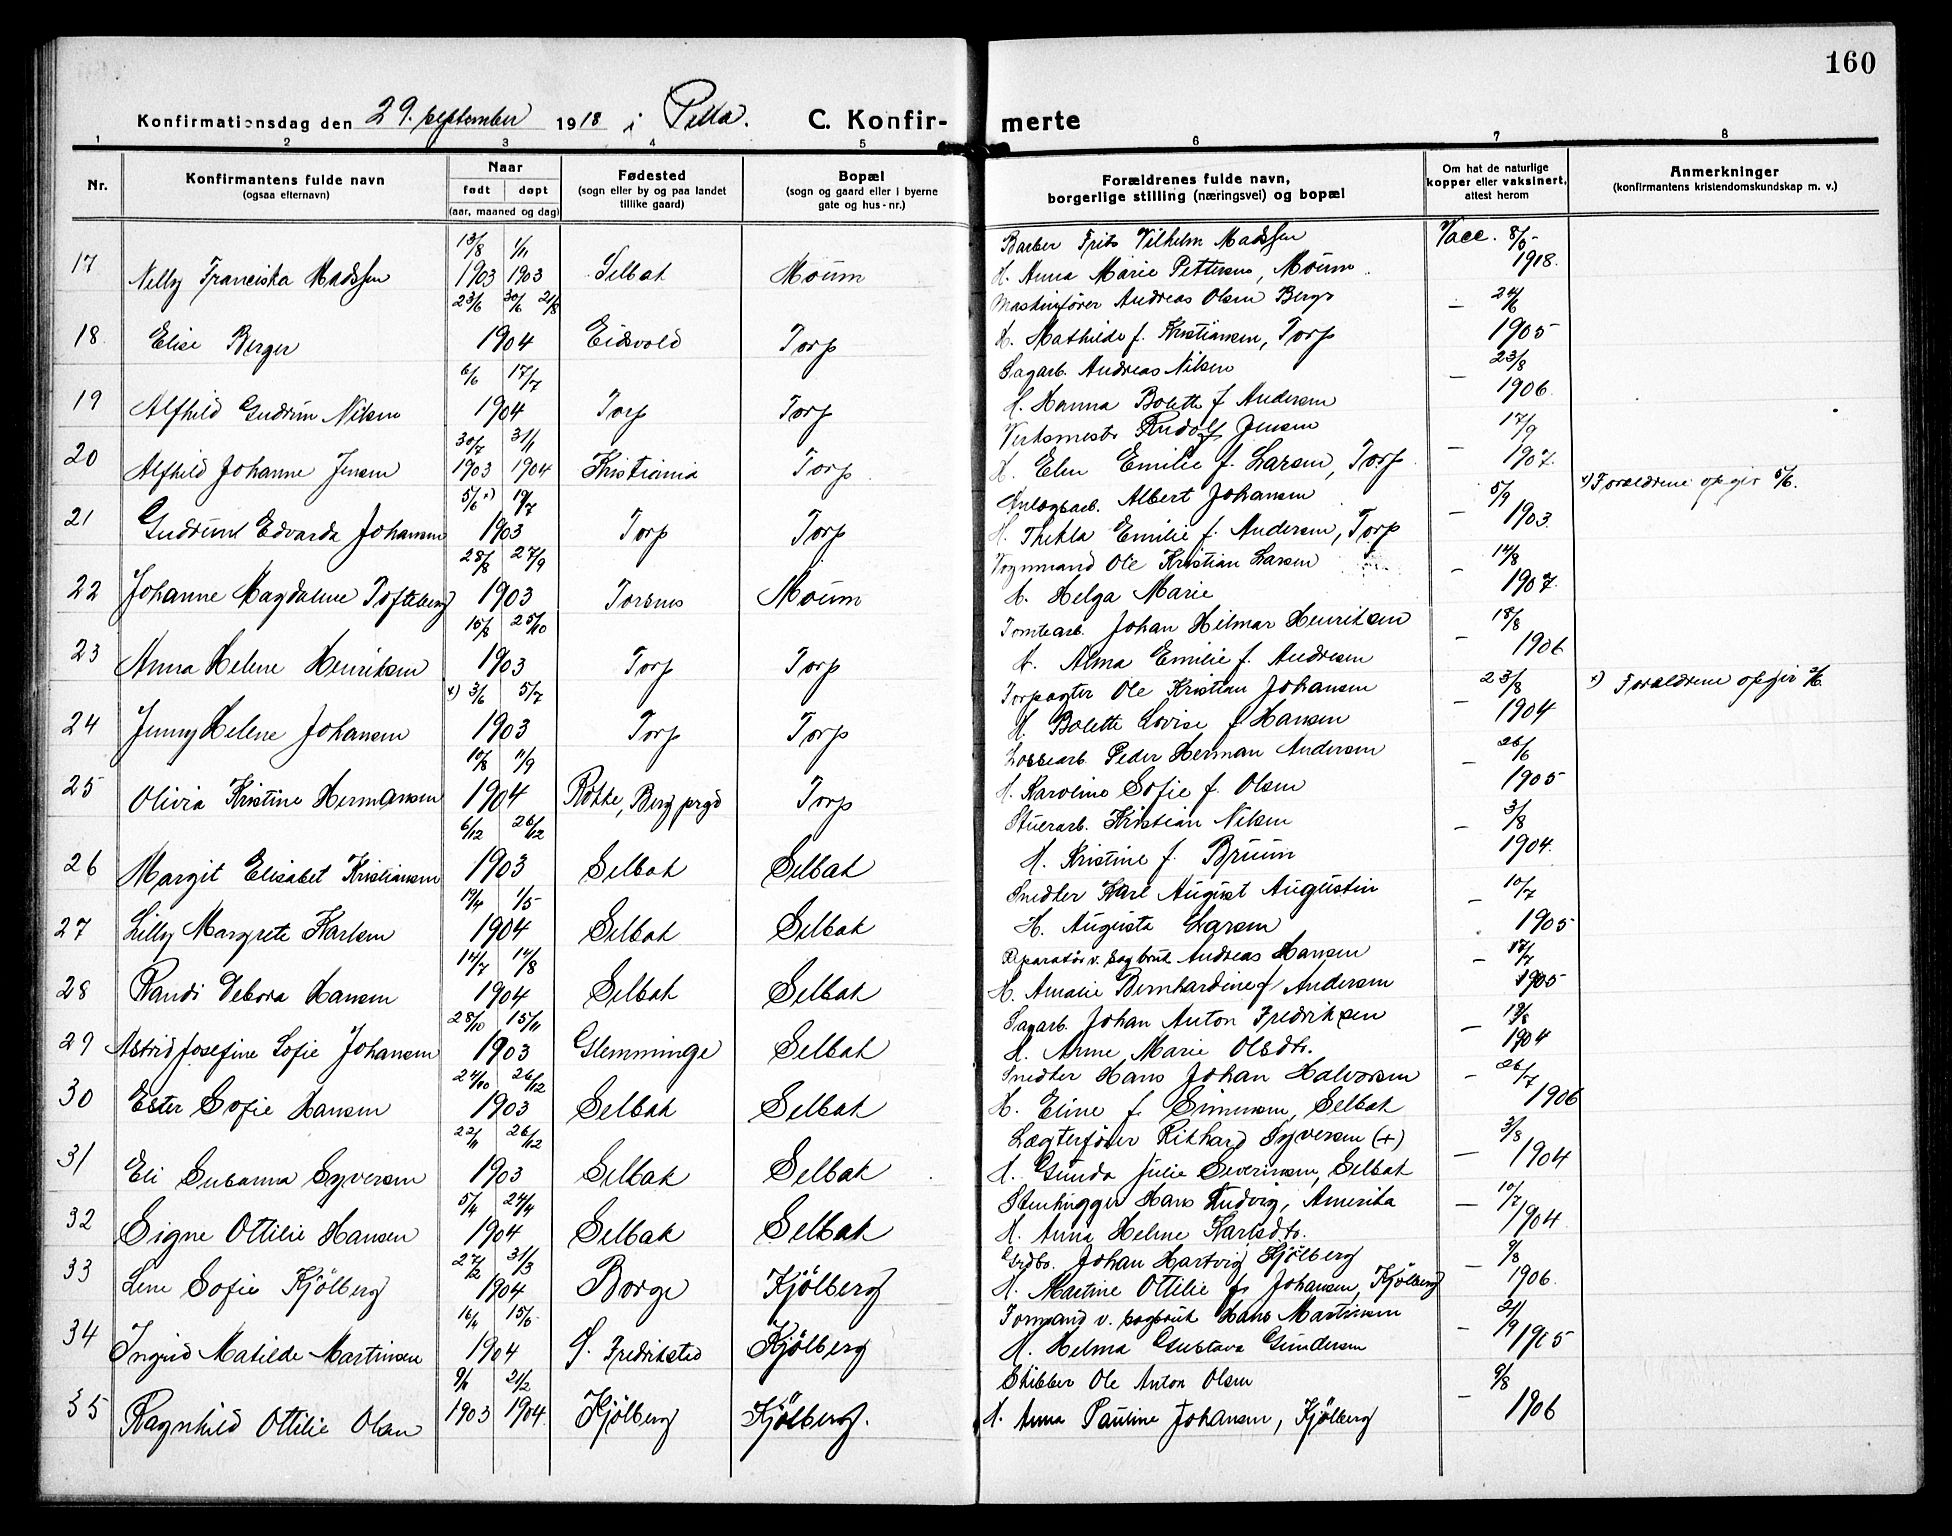 160
Konfirmationsdag den 29. september 1918 i Pella. C. Konfir- merte
1 2 3 4 5 6 7 8
Nr. Konfirmantens fulde navn (ogsaa efternavn) Naar født døpt (aar, maaned og dag) Fødested (sogn eller by og paa landet tillike gaard) Bopæl (sogn og gaard eller i byerne gate og hus-nr.) Forældrenes fulde navn, borgerlige stilling (næringsvei) og bopæl Om hat de naturlige kopper eller vaksinert, attest herom Anmerkninger (konfirmantens kristendomskundskap m. v.)
13/8 1/11 Barber Frits Vilhelm Madssen Vacc. 8/5-
17 Nelly Franciska Madssen 1903 1903 Selbak Moum H. Anna Marie Pettersen, Moum. 1918.
23/6 30/6 21/8 Maskinfører Andreas Olsen Berger — 24/6
18. Elise Berger 1904 Eidsvold Torp H. Mathilde f. Kristiansen, Torp 1905
6/6 17/7 Sagarb. Andreas Nilsen — 23/8
19 Alfhild Gudrun Nilsen 1904 Torp Torp H. Hanna Bolette f Andersen 1906
30/7 31/1 Verksmester Rudolf Jensen — 17/9
20 Alfhild Johanne Jensen 1903 1904 Kristiania Torp H. Elen Emilie f. Larsen, Torp 1907.
5/6 x) 19/7 Anlægsarb. Albert Johansen — 5/9 x) Forældrene opgir 5/6.
21 Gudrund Edvarda Johansen 1903 Torp Torp H. Thekla Emilie f. Andersen, Torp 1903.
28/8 27/9 Vognmand Ole Kristian Larsen — 14/8
22 Johanne Magdalene Tofteberg 1903 Torsnes Moum H. Helga Marie 1907.
15/8 25/10 Tomtearb. Johan Hilmar Henriksen — 18/8
23 Anna Helene Henriksen 1903 Torp Torp H. Alma Emilie f. Andresen 1906
x) 3/6 5/7 Ole Kristian Johansen — 23/8 x) Forældrene opgir
24 Jenny Helene Johansen 1903 Torp Torp H. Bolette Lovise f Hansen 1904
10/8 11/9 Lossearb. Peder Herman Andersen — 26/6
25 Olivia Kristine Hermansen 1904 Rokke, Berg prgd Torp H. Karoline Sofie f. Olsen 1905
6/12 26/12 Stuerarb. Kristian Nilsen — 3/8
26 Margit Elisabet Kristiansen 1903 Selbak Selbak H. Kristine f. Bruun 1904.
19/4 1/5 Snedker Karl August Augustin — 10/7
27 Lilly Margrete Karlsen 1904 Selbak Selbak H. Augusta Larsen 1905
14/7 14/8 Reparatør v. sagbruk Andreas Hansen — 17/7
28 Randi Debora Hansen 1904 Selbak Selbak H. Amalie Bernhardine f Andersen 1905
28/10 15/11 Sagarb. Johan Anton Fredriksen — 19/8
29 Astrid Josefine Sofie Johansen 1903 Glemminge Selbak H. Anne Marie Olsdtr. 1904
24/10 26/12 Snedker Hans Johan Halvorsen — 26/7
30 Ester Sofie Hansen 1903 Selbak Selbak H. Eline f. Simensen, Selbak 1906
22/11 26/12 Lægterfører Rikhard Syversen (+) 3/8
31 Eli Susanna Syversen 1903 Selbak Selbak H. Gunda Julie Severinsen, Selbak — 1904
5/4 24/4 Stenhugger Hans Ludvig, Amerika — 10/7
32 Signe Ottilie Hansen 1904 Selbak Selbak H. Anna Helene Karlsdtr. 1904
27/2 31/3 Grdbr. Johan Hartvig Kjölberg — 9/8
33 Lene Sofie Kjölberg 1904 Borge Kjölberg H. Martine Ottilie f. Johansen, Kjölberg 1906.
16/4 15/5 Formand v. sagbruk Hans Martinsen — 21/9
34 Ingrid Matilde Martinsen 1904 S. Fredrikstad Kjölberg H. Helma Gustava Gundersen 1905
9/11 21/2 Skibber Ole Anton Olsen — 9/8
35 Ragnhild Ottilie Olsen 1903 1904. Kjölberg Kjölberg. H. Anna Pauline Johansen, Kjölberg 1906